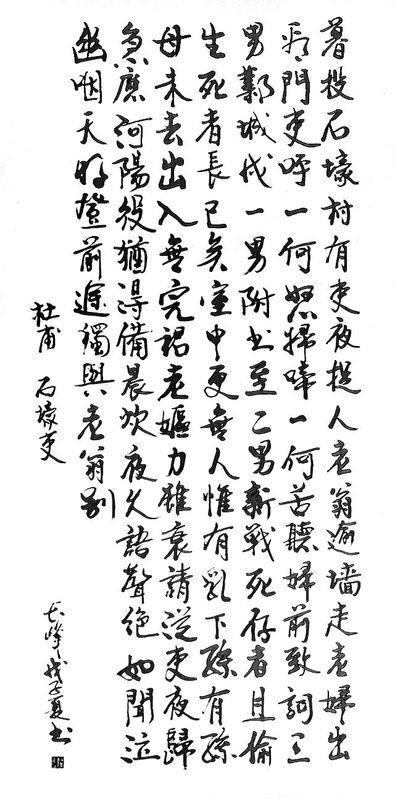 暮投石壕村有吏夜捉人老翁逾墙走老婦出
看門吏呼一何怒婦啼一何苦聽婦前致詞三
男鄴城戍一男附书至二男新戰死存者且偷
生死者長已矣室中更無人惟有乳下孫有孫
母未去出入無完裙老嫗力雖衰請從吏夜歸
急應河陽役猶得備晨炊夜久語聲絶如聞泣
幽咽天明登前途獨與老翁别
杜甫 石壕吏
长峰戊子夏书